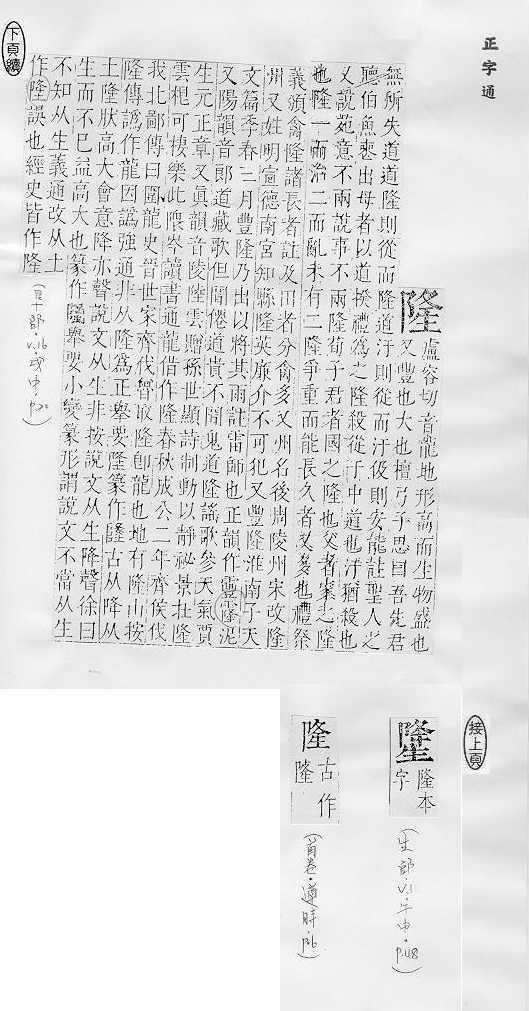 正字通
隆 盧容切音龍地形高而生物盛也
又豐也大也檀弓子思曰吾先君
無所失道道隆則從而隆道汙則從而汙伋則安能註聖人之
聽伯魚喪出母者以道揆禮為之隆殺從于中道也汙猶殺也
又說苑意不兩說事不兩隆荀子君者國之隆也父者家之隆
也隆一而治二而亂未有二隆爭重而能長久者又多也禮祭
義頒禽隆諸長者註及田者分禽多又州名後周陵州宋改隆
州又姓明宣德南宮知縣隆英廉介不可犯又豐隆淮南子天
文篇季春三月豐隆乃出以將其雨註雷師也正韻作靊霳泥
又陽韻音郎道藏歌但聞倦道貴不聞鬼道隆謠歌參天氣賈
生元正章又眞韻音陵陸雲贈孫世顯詩制動以靜祕景在隆
雲可棲樂此隈岑讀書通龍借作隆春秋成公二年齊侯伐
我北鄙傳曰圍龍史晉世家齊伐魯取隆卽龍也地有隆山按
隆傳譌作龍因譌強通非从隆為正舉要隆篆作隆古从降从
土隆狀高大會意降亦聲說文从生非按說文从生降聲徐曰
生而不已益高大也篆作舉要小變篆形謂說文不當从生
不知从生義通改从土
作隆誤也經史皆作隆
下頁續
接上頁
隆本
字
隆 古作